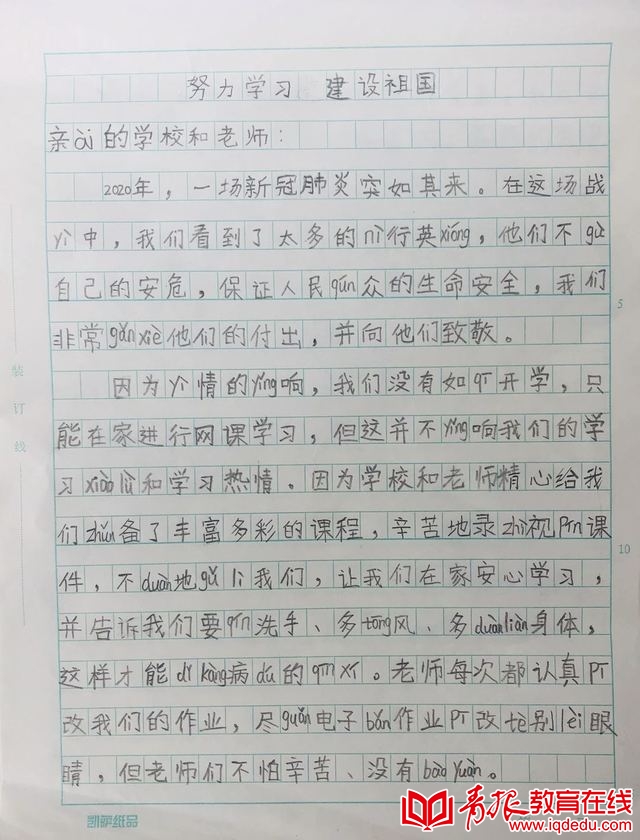 努力学习 建设祖国
亲ài的学校和老师：
2020年，一场新冠肺炎突如其来。在这场战
yì中，我们看到了太多的nì行英xióng，他们不gù
自己的安危，保证人民qún众的生命安全，我们
非常gǎnxiè他们的付出，并向他们致敬。
因为yì情的yǐng响，我们没有如qī开学，只
能在家进行网课学习，但这并不yǐng响我们的学
习xiàolǜ和学习热情。因为学校和老师精心给我
们zhǔn备了丰富多彩的课程，辛苦地录zhì视pín课
件，不duàn地gǔ lì我们，让我们在家安心学习，
并告诉我们要qín洗手、多tōng风、多duànliàn身体，
这样才能dǐ kàng病dú的qīn xí。老师每次都认真pī
改我们的作业，尽guǎn电子bǎn作业pī改tè别lèi眼
睛，但老师们不怕辛苦、没有bàoyuàn。
装
订
线
5
10
凯萨纸品
青报教育在线
www.iqdedu.com